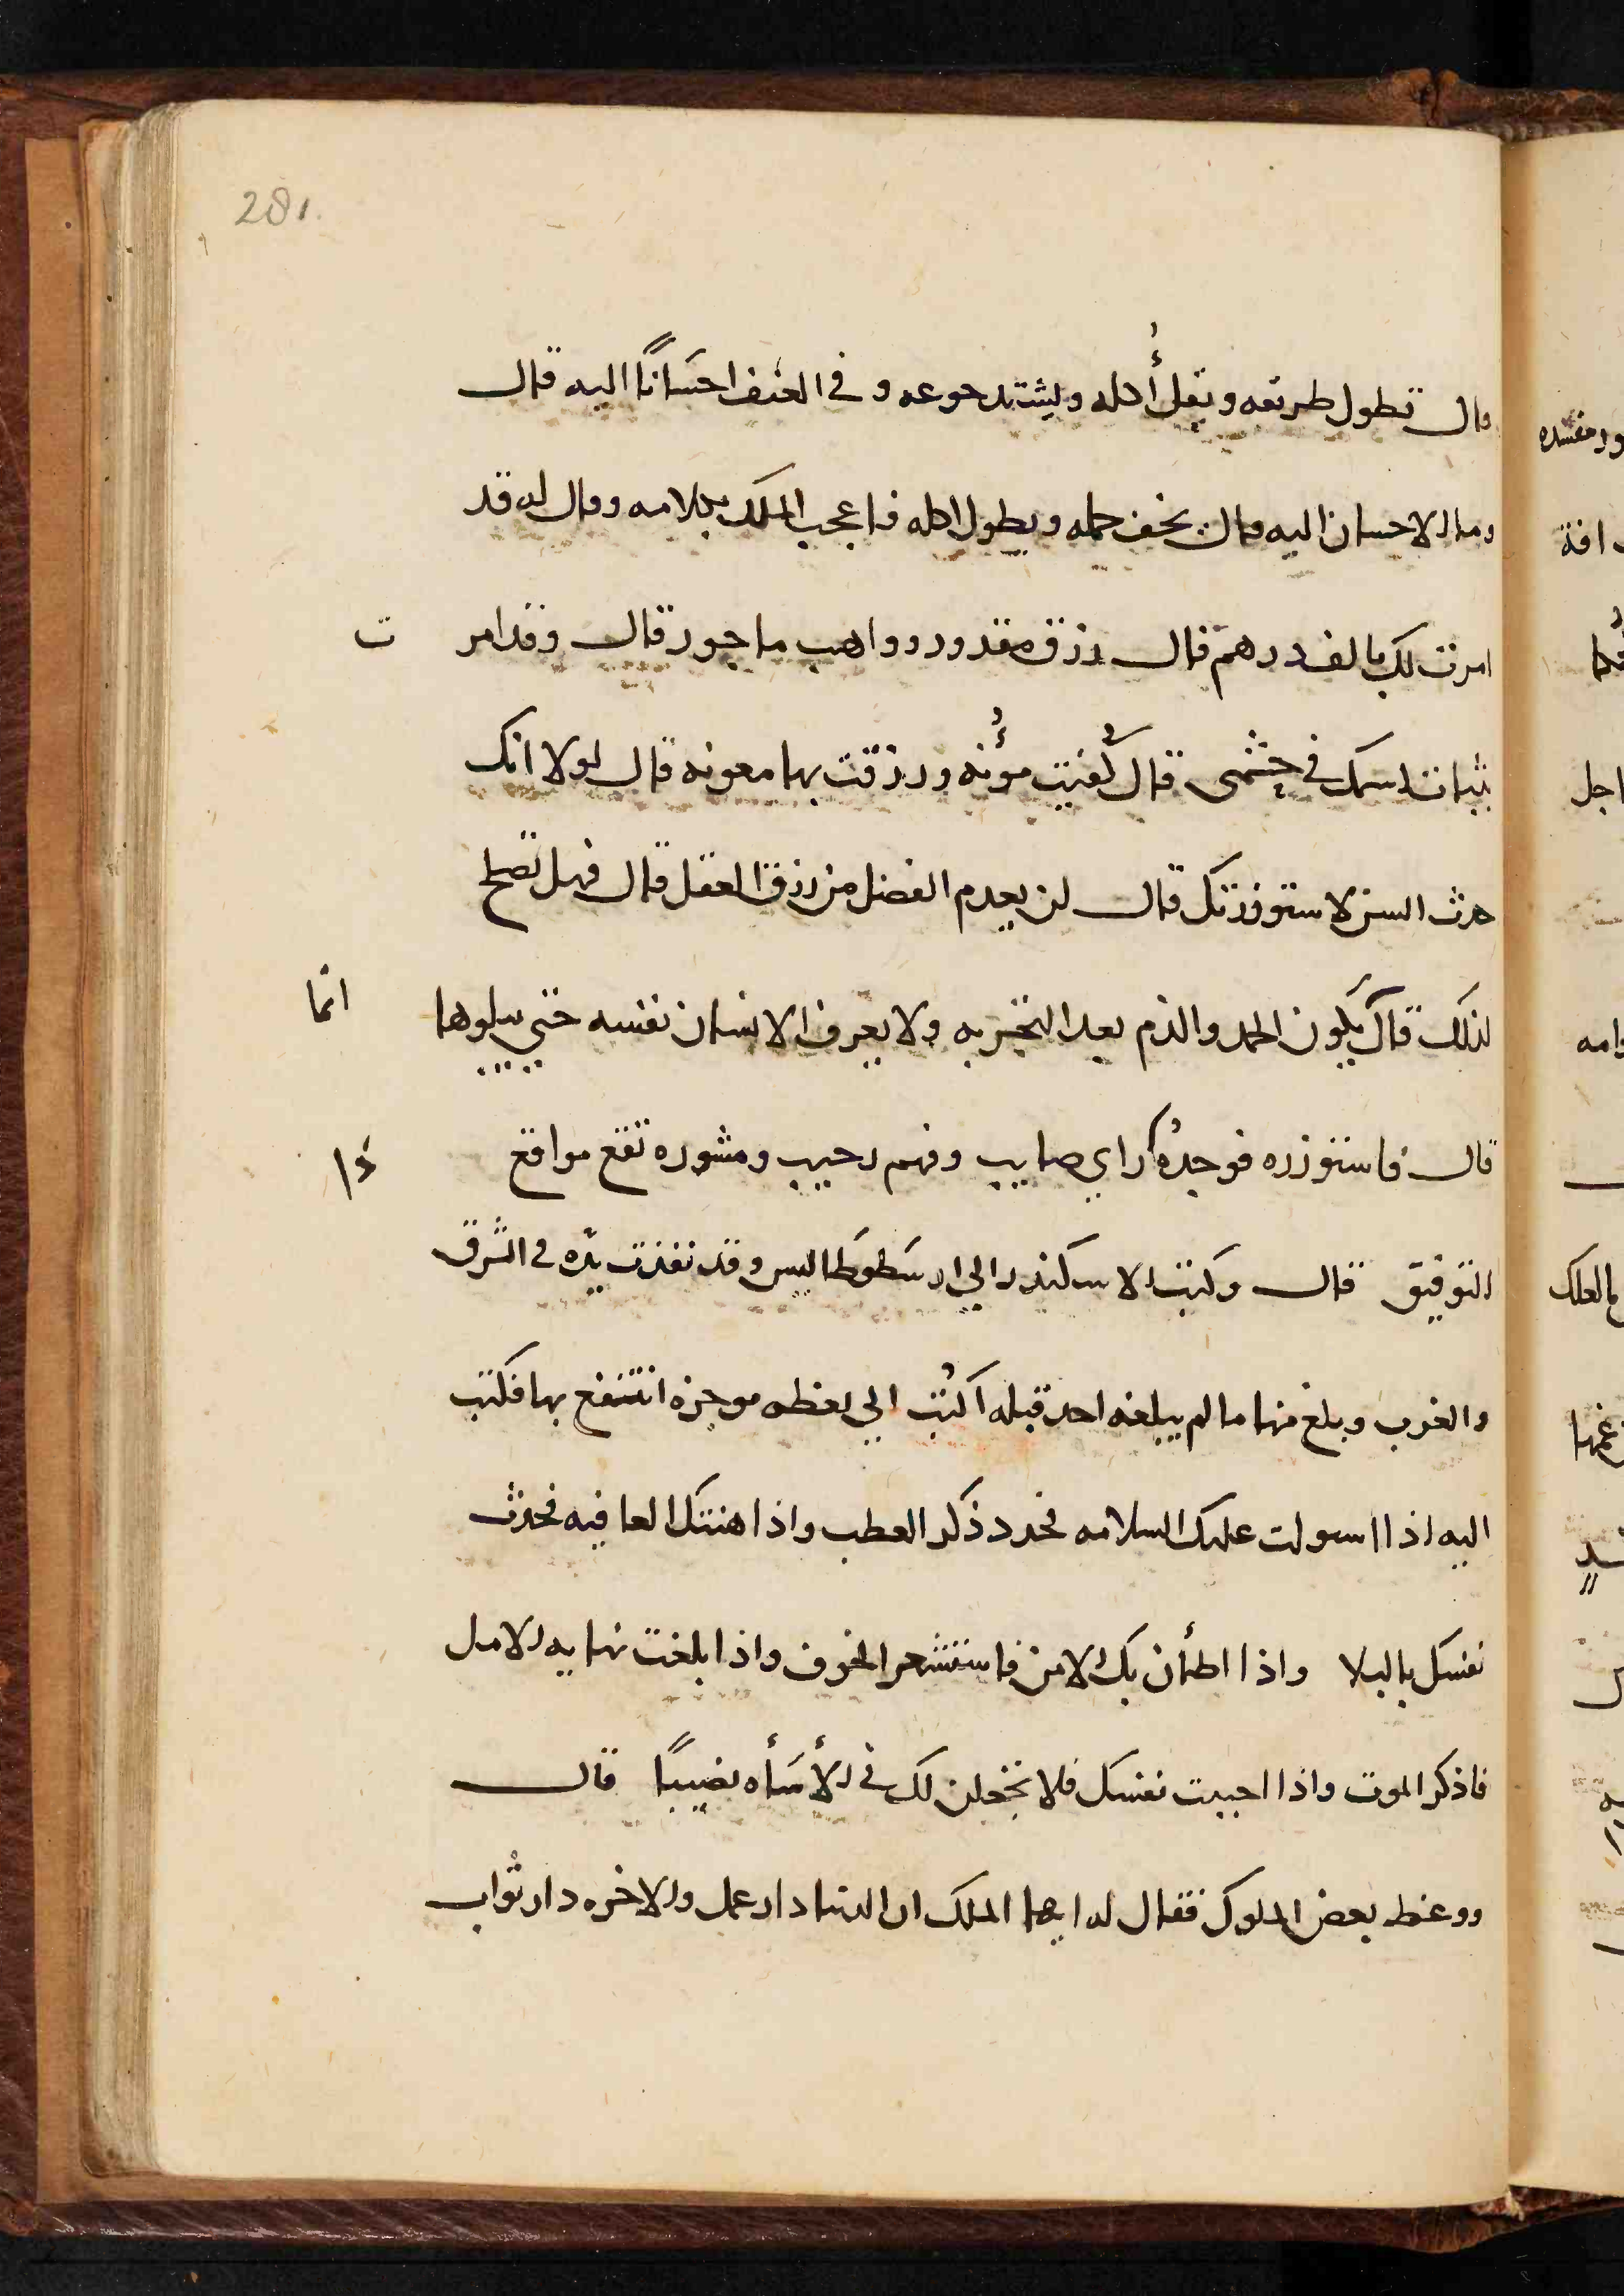 281
قال تطول طريقه ويقل أكله ويشتد جوعه وفي العنف احسَانًا اليه قال
وما الاحسان اليه قال يخف حمله ويطول اكله فاعجب الملك بكلامه وقال له قد
امرت لك بالف درهم قال رزق مقدور وواهب ماجور قال وقد امر ت
بثبات اسمك في حشمى قال كُفيت مؤُنه ورزقت بها معونه قال لولا انك
حدث السن لاستوزرتك قال لن يعدم الفضل من رزق العقل قال فهل تصلح
لذلك قال يكون الحمد والذم بعد التجربه ولا يعرف الانسان نفسه حتي يبلوها انما
قال فاستوزره فوجدهُ راي صايب وفهم رحيب ومشوره تقع مواقع ذا
التوفيق قال وكتب الاسكندر الي ارسَطوطَاليس وقد نفذت يدّه في الشرق
والغرب وبلغ منها ما لم يبلغه احد قبله اكتُب الي لفظه موجزه انتفع بها فكتب
اليه اذا استولت عليك السلامه فجدد ذكر العطب واذا هنتك العافيه فحدث
نفسك بالبلا واذا اطمأن بك الامن فاستشعر الخوف واذا بلغت نهايه الامل
فاذكر الموت واذا احببت نفسك فلا تجعلن لك في الأسَأه نصيبًا قال
ووعظ بعض الملوك فقال له ايها الملك ان الدنيا دار عمل والاخره دار ثواب